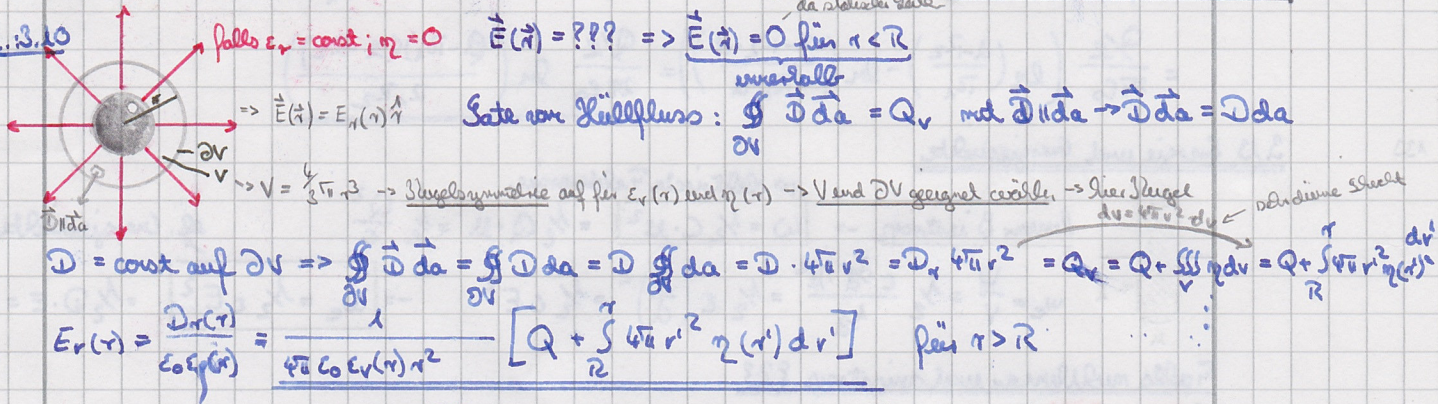 da statischer
..:3.10
falls εᵣ = const; η = 0
E⃗(r⃗) = ??? => E⃗(r⃗) = 0 für r < R
innerhalb
r
=> E⃗(r⃗) = Eᵣ(r) r⃗
Satz vom Hüllfluss: ∯ D⃗ da⃗ = Qᵥ mit D⃗ || da⃗ → D⃗ da⃗ = D da
∂V
∂V
V
-> V = 4/3 π r³ -> Kugelsymmetrie auf für εᵣ(r) und η(r) -> V und ∂V geeignet wähle, -> hier Kugel
D⃗ || da⃗
dv = 4πr² dr ← sehr dünne Schicht
D = const auf ∂V => ∯_∂V D⃗ da⃗ = ∯_∂V D da = D ∯_∂V da = D · 4πr² = Dᵣ 4πr² = Qᵥ = Q + ∭_V η dv = Q + ∫_R^r 4πr'² η(r') dr'
Eᵣ(r) = Dᵣ(r) / (ε₀ εᵣ(r)) = 1 / (4π ε₀ εᵣ(r) r²) [Q + ∫_R^r 4π r'² η(r') dr'] für r > R